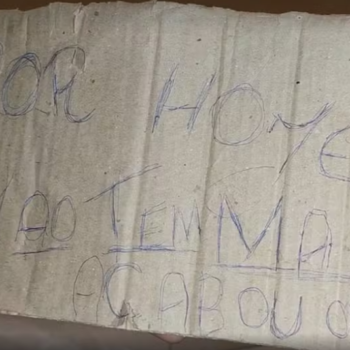 POR HOJE
NAO TEM MA
ACABOU O